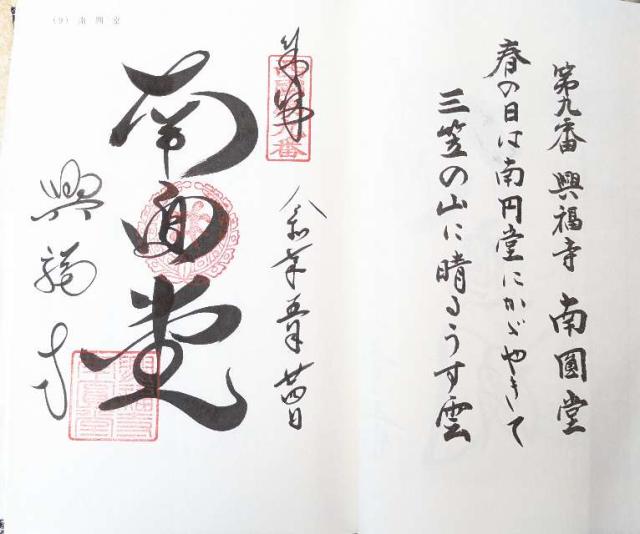 第九番 興福寺 南圓堂
春の日は南円堂にかゞやきて
三笠の山に晴るうす雲
(9) 南円堂
奉拝
西国第九番
五月廿四日
南圓堂
興福寺